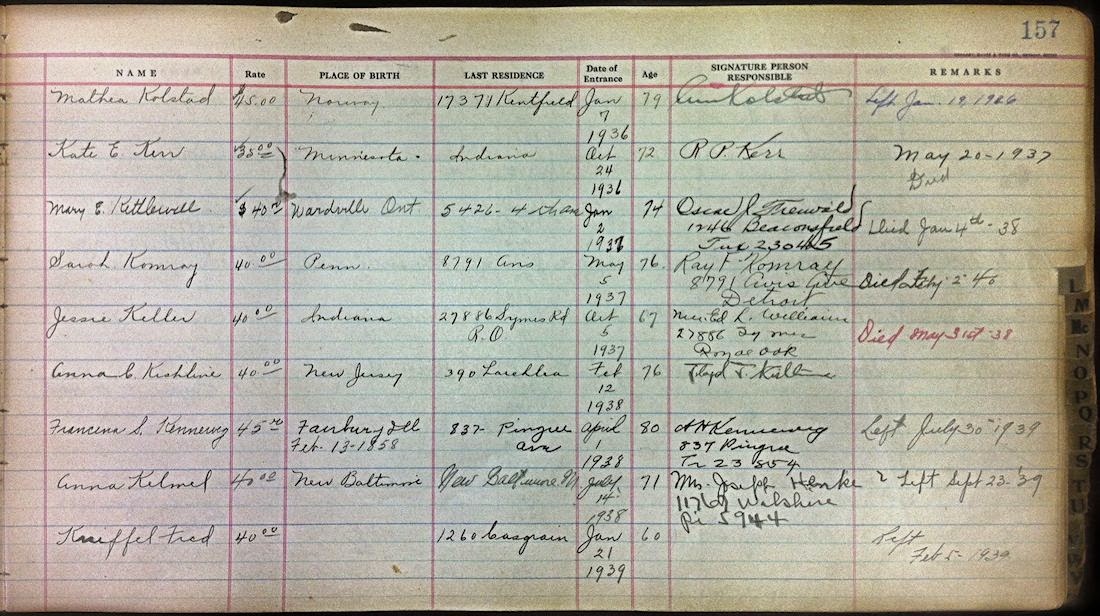 157
NAME Rate PLACE OF BIRTH LAST RESIDENCE Date of Entrance Age SIGNATURE PERSON RESPONSIBLE REMARKS
Mathea Kolstad $45.00 Norway 17371 Kentfield Jan 79 Kolstad Left Jan. 19, 1926
7
1936
Kate E. Kerr 35 00 Minnesota. Indiana Oct 72 R P. Kerr May 20-1937
24 Died
1936
Mary E. Kettlewell $40 Wardville Ont 5426-4 Jan 74 Oscar J
2 1246 Beaconsfield Died Jan 4th - 38
1937 Tux 23045
Sarah Komray 40 00 Penn. 8791 May 76. Ray F. Komray
5 8791 Avis Ave Died Feby 2 40
1937 Detroit
Jessie Keller 40 00 Indiana 27886 Symes Rd Oct 67 Mrs. Ed L. William
R.O 5 27886 Symes Died May 31st-38
1937 Royal Oak
Anna C. Kishline 40 00 New Jersey 390 Feb 76 Floyd T.
12
1938
Francena S. Kennewig 45 Fairbury Ill 837- Pingree April 80 A H Kennewig Left July 30-1939
Feb-13-1858 ave 1 837 Pingree
1938 Tr 23 854
Anna Kelmel 40 00 New Baltimore New Baltimore July 71 Mrs. Joseph Henke Left Sept 23-'39
14 11769 Wilshire
1938 Pi 5944
Knieffel Fred 40 00 1260 Casgrain Jan 60 Left
21 Feb 5-1939
1939
L
M
Mc
N
O
P Q
R
S
T
U